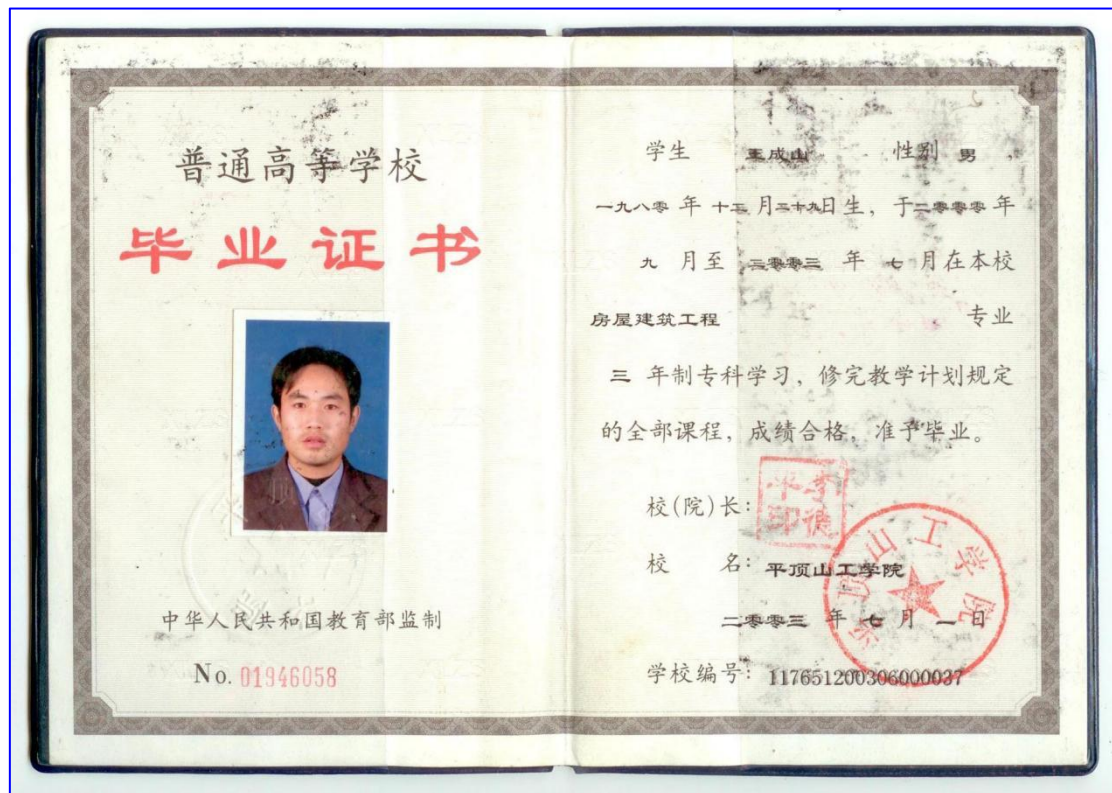 普通高等学校
毕业证书
中华人民共和国教育部监制
No. 01946058
学生 王成山 性别 男 ,
一九八零 年 十二 月二十九日生, 于二零零零 年
九 月至 二零零三 年 七 月在本校
房屋建筑工程 专业
三 年制专科学习, 修完教学计划规定
的全部课程, 成绩合格, 准予毕业。
校(院)长:
校 名: 平顶山工学院
平顶山工学院
二零零三 年 七 月 一 日
学校编号: 117651200306000037